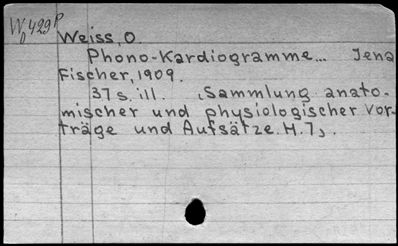 W 429 P
Weiss, O.
Phono-Kardiogramme... Jena
Fischer, 1909.
37 s. ill. (Sammlung anato-
mischer und physiologischer Vor-
träge und Aufsätze. H. 7).